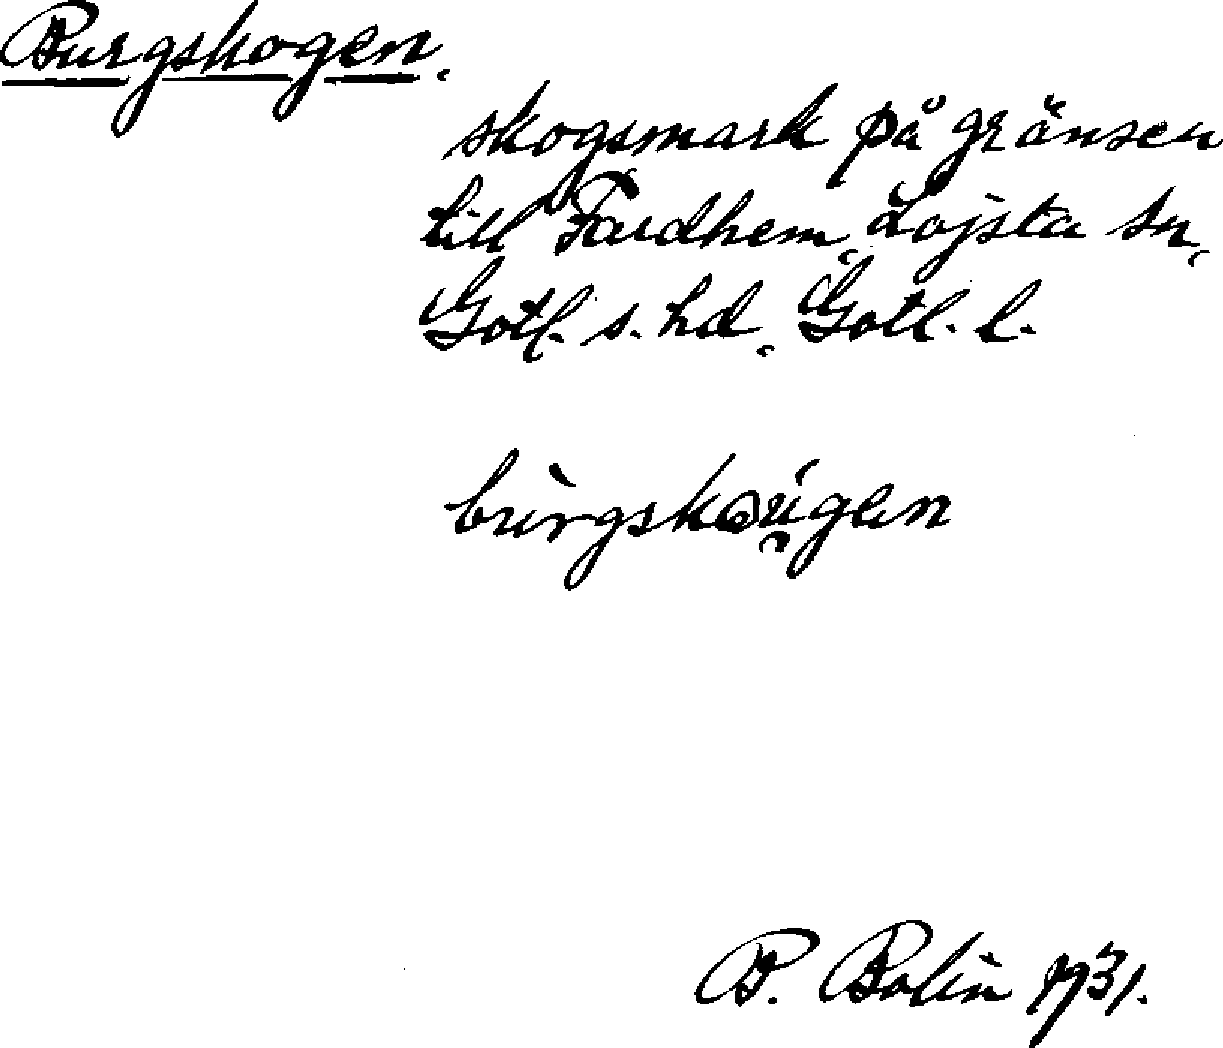 Burgskogen.
skogsmark på gränsen
till Fardhem, Lojsta sn,
Gotl. s. hd, Gotl. l.
bùrgskǝú̯gen
B. Bolin 1931.